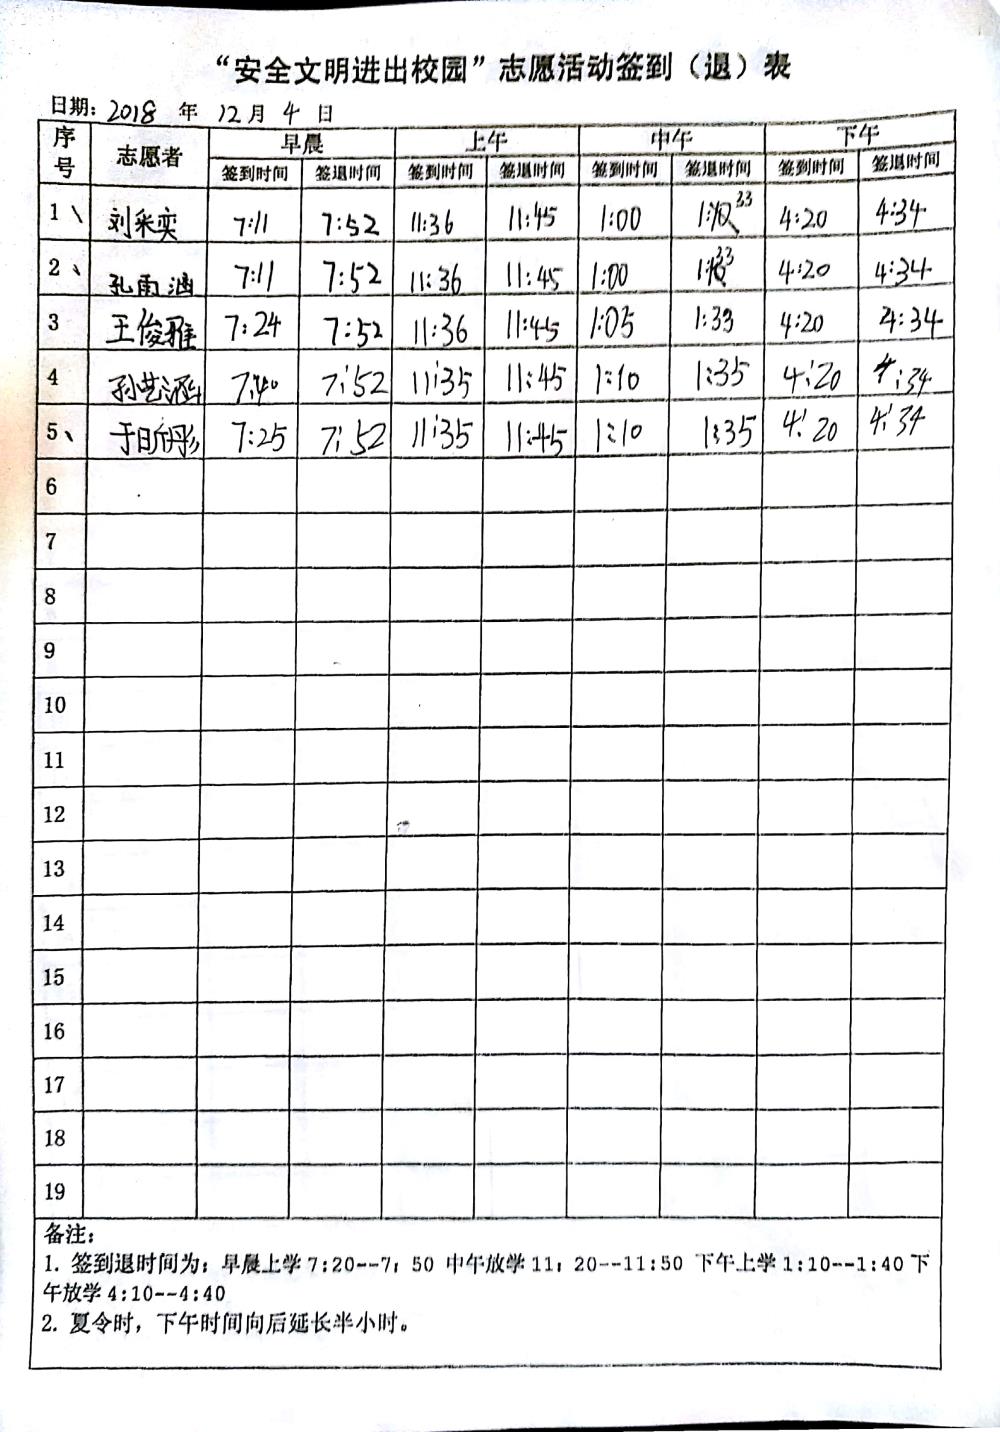 “安全文明进出校园”志愿活动签到（退）表
日期: 2018 年 12 月 4 日
序号 志愿者 早晨 上午 中午 下午
签到时间 签退时间 签到时间 签退时间 签到时间 签退时间 签到时间 签退时间
1 刘采奕 7:11 7:52 11:36 11:45 1:00 1:33 4:20 4:34
2 孔雨涵 7:11 7:52 11:36 11:45 1:00 1:33 4:20 4:34
3 王俊雅 7:24 7:52 11:36 11:45 1:05 1:33 4:20 4:34
4 孙艺涵 7:40 7:52 11:35 11:45 1:10 1:35 4:20 4:34
5 于昕彤 7:25 7:52 11:35 11:45 1:10 1:35 4:20 4:34
6
7
8
9
10
11
12
13
14
15
16
17
18
19
备注:
1. 签到退时间为: 早晨上学 7:20--7: 50 中午放学 11: 20--11:50 下午上学 1:10--1:40 下
午放学 4:10--4:40
2. 夏令时，下午时间向后延长半小时。